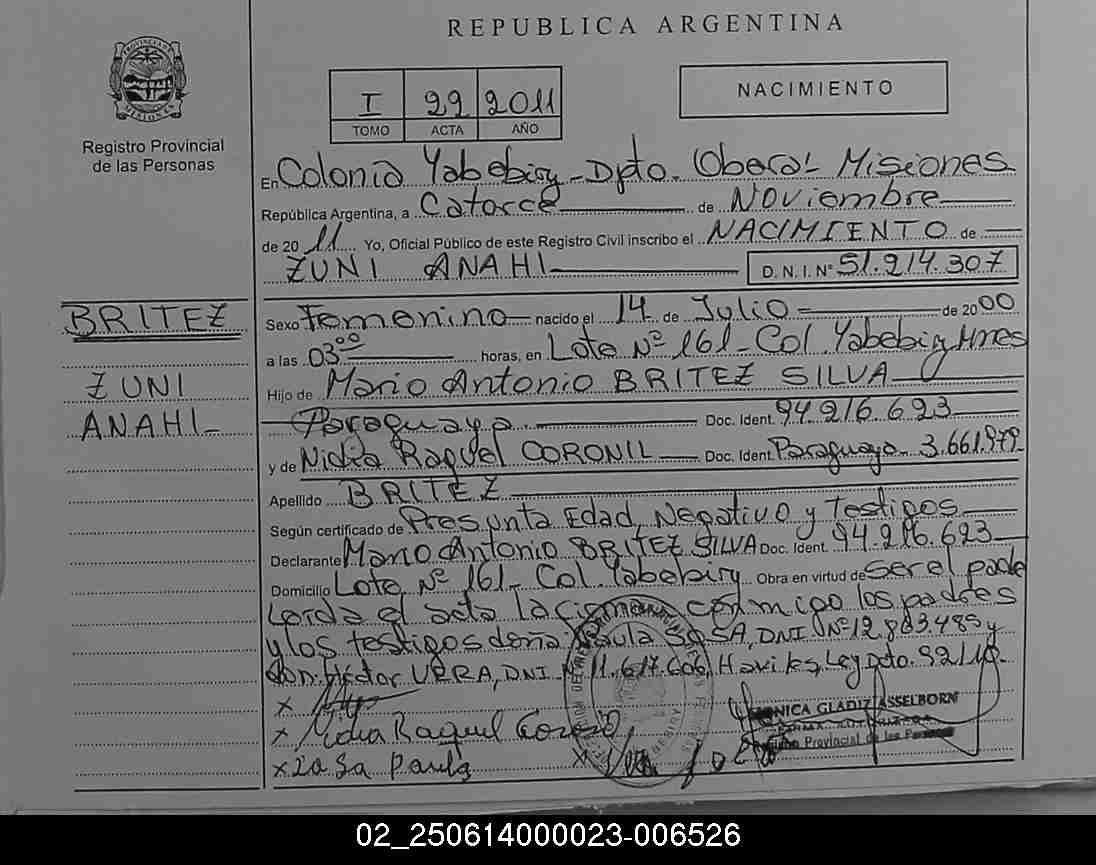 REPUBLICA ARGENTINA
PROVINCIA DE MISIONES
Registro Provincial
de las Personas
I 22 2011
TOMO ACTA AÑO
NACIMIENTO
En Colonia Yabebiry - Dpto. Oberá - Misiones
República Argentina, a Catorce de Noviembre
de 20 11 Yo, Oficial Público de este Registro Civil inscribo el NACIMIENTO de
ZUNI ANAHI D.N.I. Nº 51.214.307
BRITEZ
ZUNI
ANAHI
Sexo Femenino nacido el 14 de Julio de 2000
a las 03⁰⁰ horas, en Lote Nº 161 - Col. Yabebiry Mnes
Hijo de Mario Antonio BRITEZ SILVA
Paraguaya Doc. Ident. 94.216.623
y de Nidia Raquel CORONIL Doc. Ident. Paraguaya - 3.661.979
Apellido BRITEZ
Según certificado de Presunta Edad, Negativo y Testigos
Declarante Mario Antonio BRITEZ SILVA Doc. Ident. 94.216.623
Domicilio Lote Nº 161 - Col. Yabebiry Obra en virtud de ser el padre
Leída el acta la firman conmigo los padres
y los testigos doña Paula SOSA, DNI Nº 12.883.485 y
don Héctor URRA, DNI Nº 11.617.606, Ley Dcto.
x
x Nidia Raquel
x Sosa Paula
MONICA GLADIZ ASSELBORN
FIRMA AUTORIZADA
Registro Provincial de las Personas
02_250614000023-006526